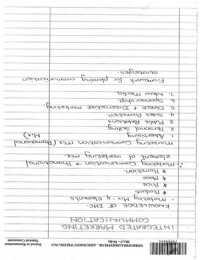 INTEGRATED MARKETING
COMMUNICATION
KNOWLEDGE OF IMC.
- marketing Mix 4 Elements
* Product
* Price
* Place
* Promotion
Marketing Communication = Promotional
element of marketing mix.
Marketing Communication Mix (Promotional
Mix)
1. Advertising
2. Personal Selling
3. Public Relations
4. Sales Promotion
5. Direct + Interactive marketing
6. Sponsorship
7. New Media
Framework for planning communication
strategies.